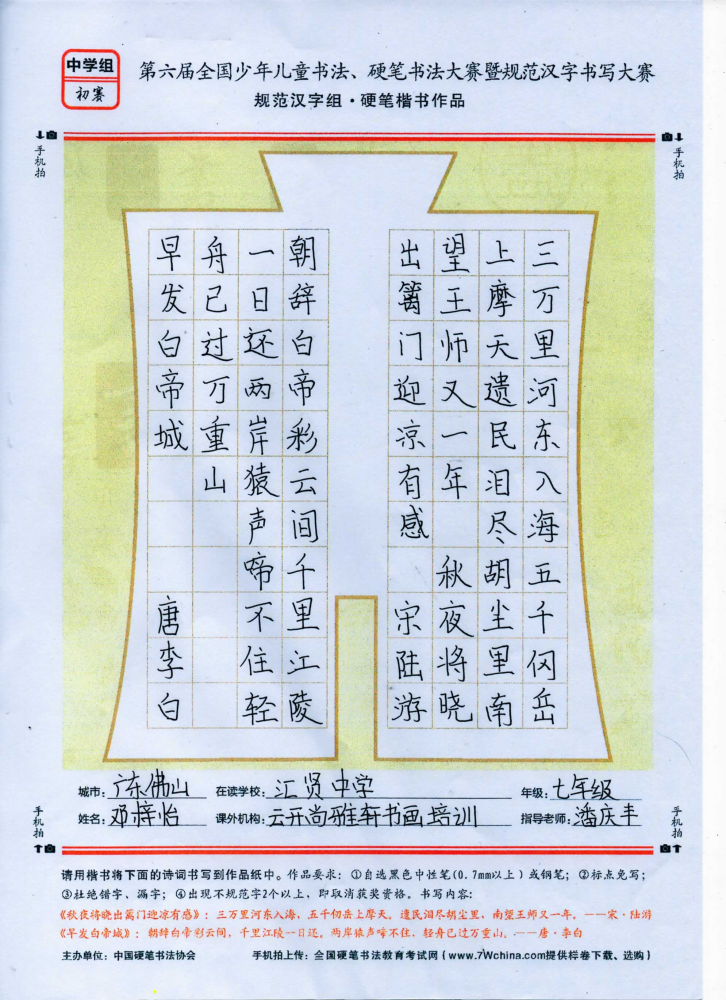 中学组
初赛
第六届全国少年儿童书法、硬笔书法大赛暨规范汉字书写大赛
规范汉字组·硬笔楷书作品
手机拍
手机拍
三万里河东入海五千仞岳
上摩天遗民泪尽胡尘里南
望王师又一年 秋夜将晓
出篱门迎凉有感 宋陆游
朝辞白帝彩云间千里江陵
一日还两岸猿声啼不住轻
舟已过万重山
早发白帝城 唐李白
城市：广东佛山 在读学校：汇贤中学 年级：七年级
姓名：邓梓怡 课外机构：云开尚雅轩书画培训 指导老师：潘庆丰
手机拍
手机拍
请用楷书将下面的诗词书写到作品纸中。作品要求：①自选黑色中性笔(0.7mm以上)或钢笔；②标点免写；
③杜绝错字、漏字；④出现不规范字2个以上，即取消获奖资格。书写内容：
《秋夜将晓出篱门迎凉有感》：三万里河东入海，五千仞岳上摩天。遗民泪尽胡尘里，南望王师又一年。——宋·陆游
《早发白帝城》：朝辞白帝彩云间，千里江陵一日还。两岸猿声啼不住，轻舟已过万重山。——唐·李白
主办单位：中国硬笔书法协会 手机拍上传：全国硬笔书法教育考试网（www.7Wchina.com提供样卷下载、选购）